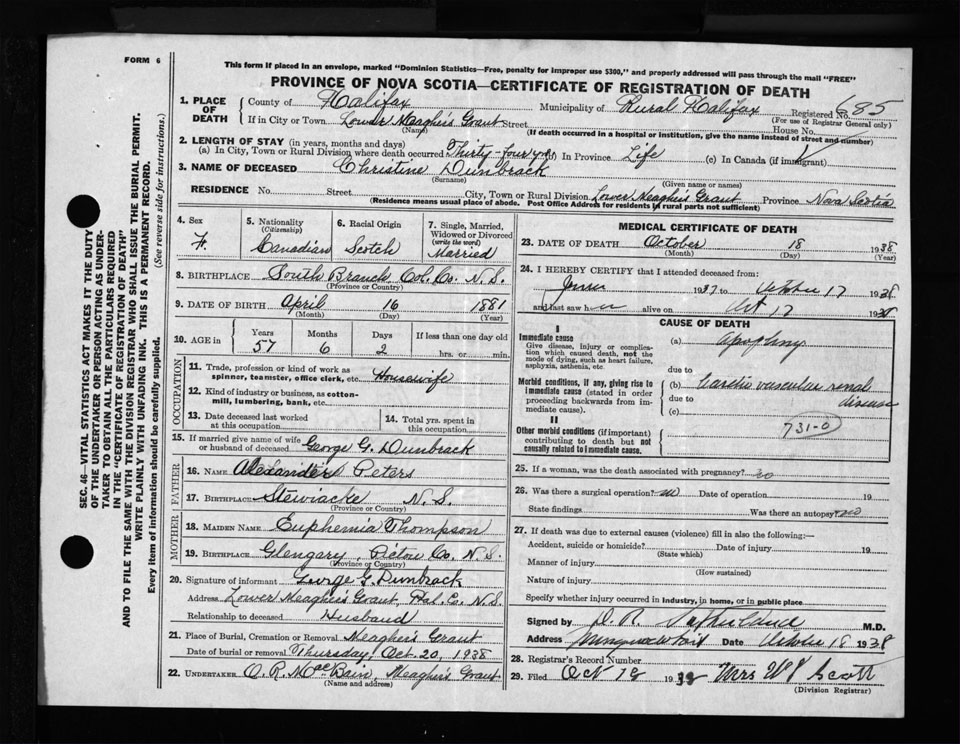 FORM 6
This form if placed in an envelope, marked "Dominion Statistics—Free, penalty for improper use $300," and properly addressed will pass through the mail "FREE"
PROVINCE OF NOVA SCOTIA—CERTIFICATE OF REGISTRATION OF DEATH
SEC. 46—VITAL STATISTICS ACT MAKES IT THE DUTY
OF THE UNDERTAKER OR PERSON ACTING AS UNDER-
TAKER TO OBTAIN ALL THE PARTICULARS REQUIRED
IN THE "CERTIFICATE OF REGISTRATION OF DEATH"
AND TO FILE THE SAME WITH THE DIVISION REGISTRAR WHO SHALL ISSUE THE BURIAL PERMIT.
WRITE PLAINLY WITH UNFADING INK. THIS IS A PERMANENT RECORD.
Every item of information should be carefully supplied. (See reverse side for instructions.)
1. PLACE OF DEATH County of Halifax Municipality of Rural Halifax Registered 685
(For use of Registrar General only)
If in City or Town Lower Meagher's Grant Street House No.
(Name) (If death occurred in a hospital or institution, give the name instead of street and number)
2. LENGTH OF STAY (in years, months and days)
(a) In City, Town or Rural Division where death occurred Thirty-four yrs (b) In Province Life (c) In Canada (if immigrant)
3. NAME OF DECEASED Christine Dunbrack
(Surname) (Given name or names)
RESIDENCE No. Street City, Town or Rural Division Lower Meagher's Grant Province Nova Scotia
(Residence means usual place of abode. Post Office Address for residents in rural parts not sufficient)
4. Sex F.
5. Nationality (Citizenship) Canadian
6. Racial Origin Scotch
7. Single, Married, Widowed or Divorced (write the word) Married
8. BIRTHPLACE South Branch Col. Co. N.S.
(Province or Country)
9. DATE OF BIRTH April 16 1881
(Month) (Day) (Year)
10. AGE in Years 57 Months 6 Days 2 If less than one day old hrs. or min.
OCCUPATION
11. Trade, profession or kind of work as spinner, teamster, office clerk, etc. Housewife
12. Kind of industry or business, as cotton-mill, lumbering, bank, etc.
13. Date deceased last worked at this occupation
14. Total yrs. spent in this occupation
15. If married give name of wife or husband of deceased George G. Dunbrack
FATHER
16. NAME Alexander Peters
17. BIRTHPLACE Stewiacke N.S.
(Province or Country)
MOTHER
18. MAIDEN NAME Euphemia Thompson
19. BIRTHPLACE Glengary, Pictou Co. N.S.
(Province or Country)
20. Signature of informant George G. Dunbrack
Address Lower Meagher's Grant, Hal. Co. N.S.
Relationship to deceased Husband
21. Place of Burial, Cremation or Removal Meagher's Grant
Date of burial or removal Thursday Oct. 20, 1938
22. UNDERTAKER O. R. MacBain, Meagher's Grant
(Name and address)
MEDICAL CERTIFICATE OF DEATH
23. DATE OF DEATH October 18 1938
(Month) (Day)
24. I HEREBY CERTIFY that I attended deceased from:
1937 to October 17 1938
and last saw h alive on Oct 17 1938
CAUSE OF DEATH
I
Immediate cause
Give disease, injury or complication which caused death, not the mode of dying, such as heart failure, asphyxia, asthenia, etc.
(a) Apoplexy
due to
Morbid conditions, if any, giving rise to immediate cause (stated in order proceeding backwards from immediate cause).
(b) Cardio vascular renal disease
due to
(c)
731-0
II
Other morbid conditions (if important) contributing to death but not causally related to immediate cause.
25. If a woman, was the death associated with pregnancy? no
26. Was there a surgical operation? no Date of operation 19
State findings Was there an autopsy? no
27. If death was due to external causes (violence) fill in also the following:—
Accident, suicide or homicide? Date of injury 19
(State which)
Manner of injury
(How sustained)
Nature of injury
Specify whether injury occurred in industry, in home, or in public place
Signed by D. R. Sutherland M.D.
Address Date October 18 1938
28. Registrar's Record Number
29. Filed Oct 18 1938 Mrs W Scott
(Division Registrar)